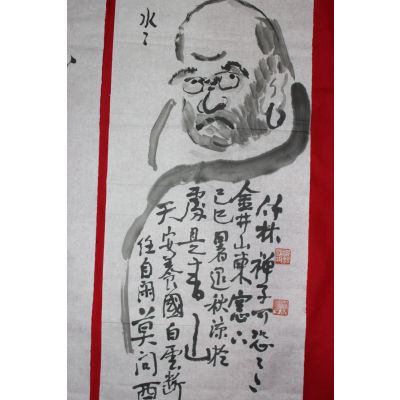 水々
任自閑莫問西
天安養國白雲断
處是青山
己巳暑退秋涼於
金井山東窓下
竹林禅子可